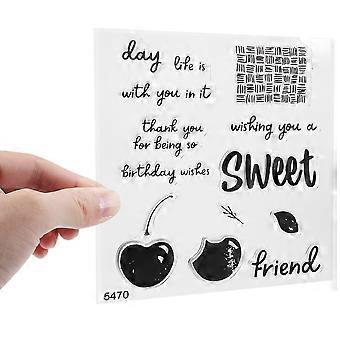 day life is
with you in it
thank you
for being so
wishing you a
birthday wishes
sweet
friend
5470